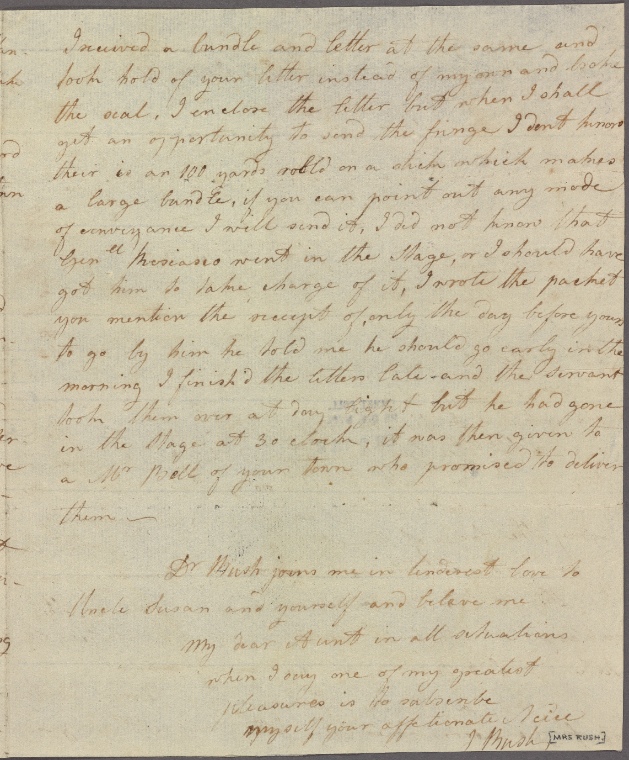 I received a bundle and letter at the same and
took hold of your letter instead of my own and broke
the seal, I enclose the letter but when I shall
get an opportunity to send the fringe I dont know
their is an 100 yards rolld on a stick which makes
a large bundle, if you can point out any mode
of conveyance I will send it, I did not know that
Genll went in the Stage, or I should have
got him to take charge of it, I wrote the packet
you mention the receipt of, only the day before yours
to go by him he told me he should go early in the
morning I finish'd the letters late and the servant
took them over at day light but he had gone
in the Stage at 3 o clock, it was then given to
a Mr Bell of your town who promised to deliver
them —
Dr Rush joins me in tenderest love to
Uncle Susan and yourself and beleve me
My dear Aunt in all situations
when I say one of my greatest
pleasures is to subscribe
myself your affectionate Neice
J Rush
[MRS RUSH]